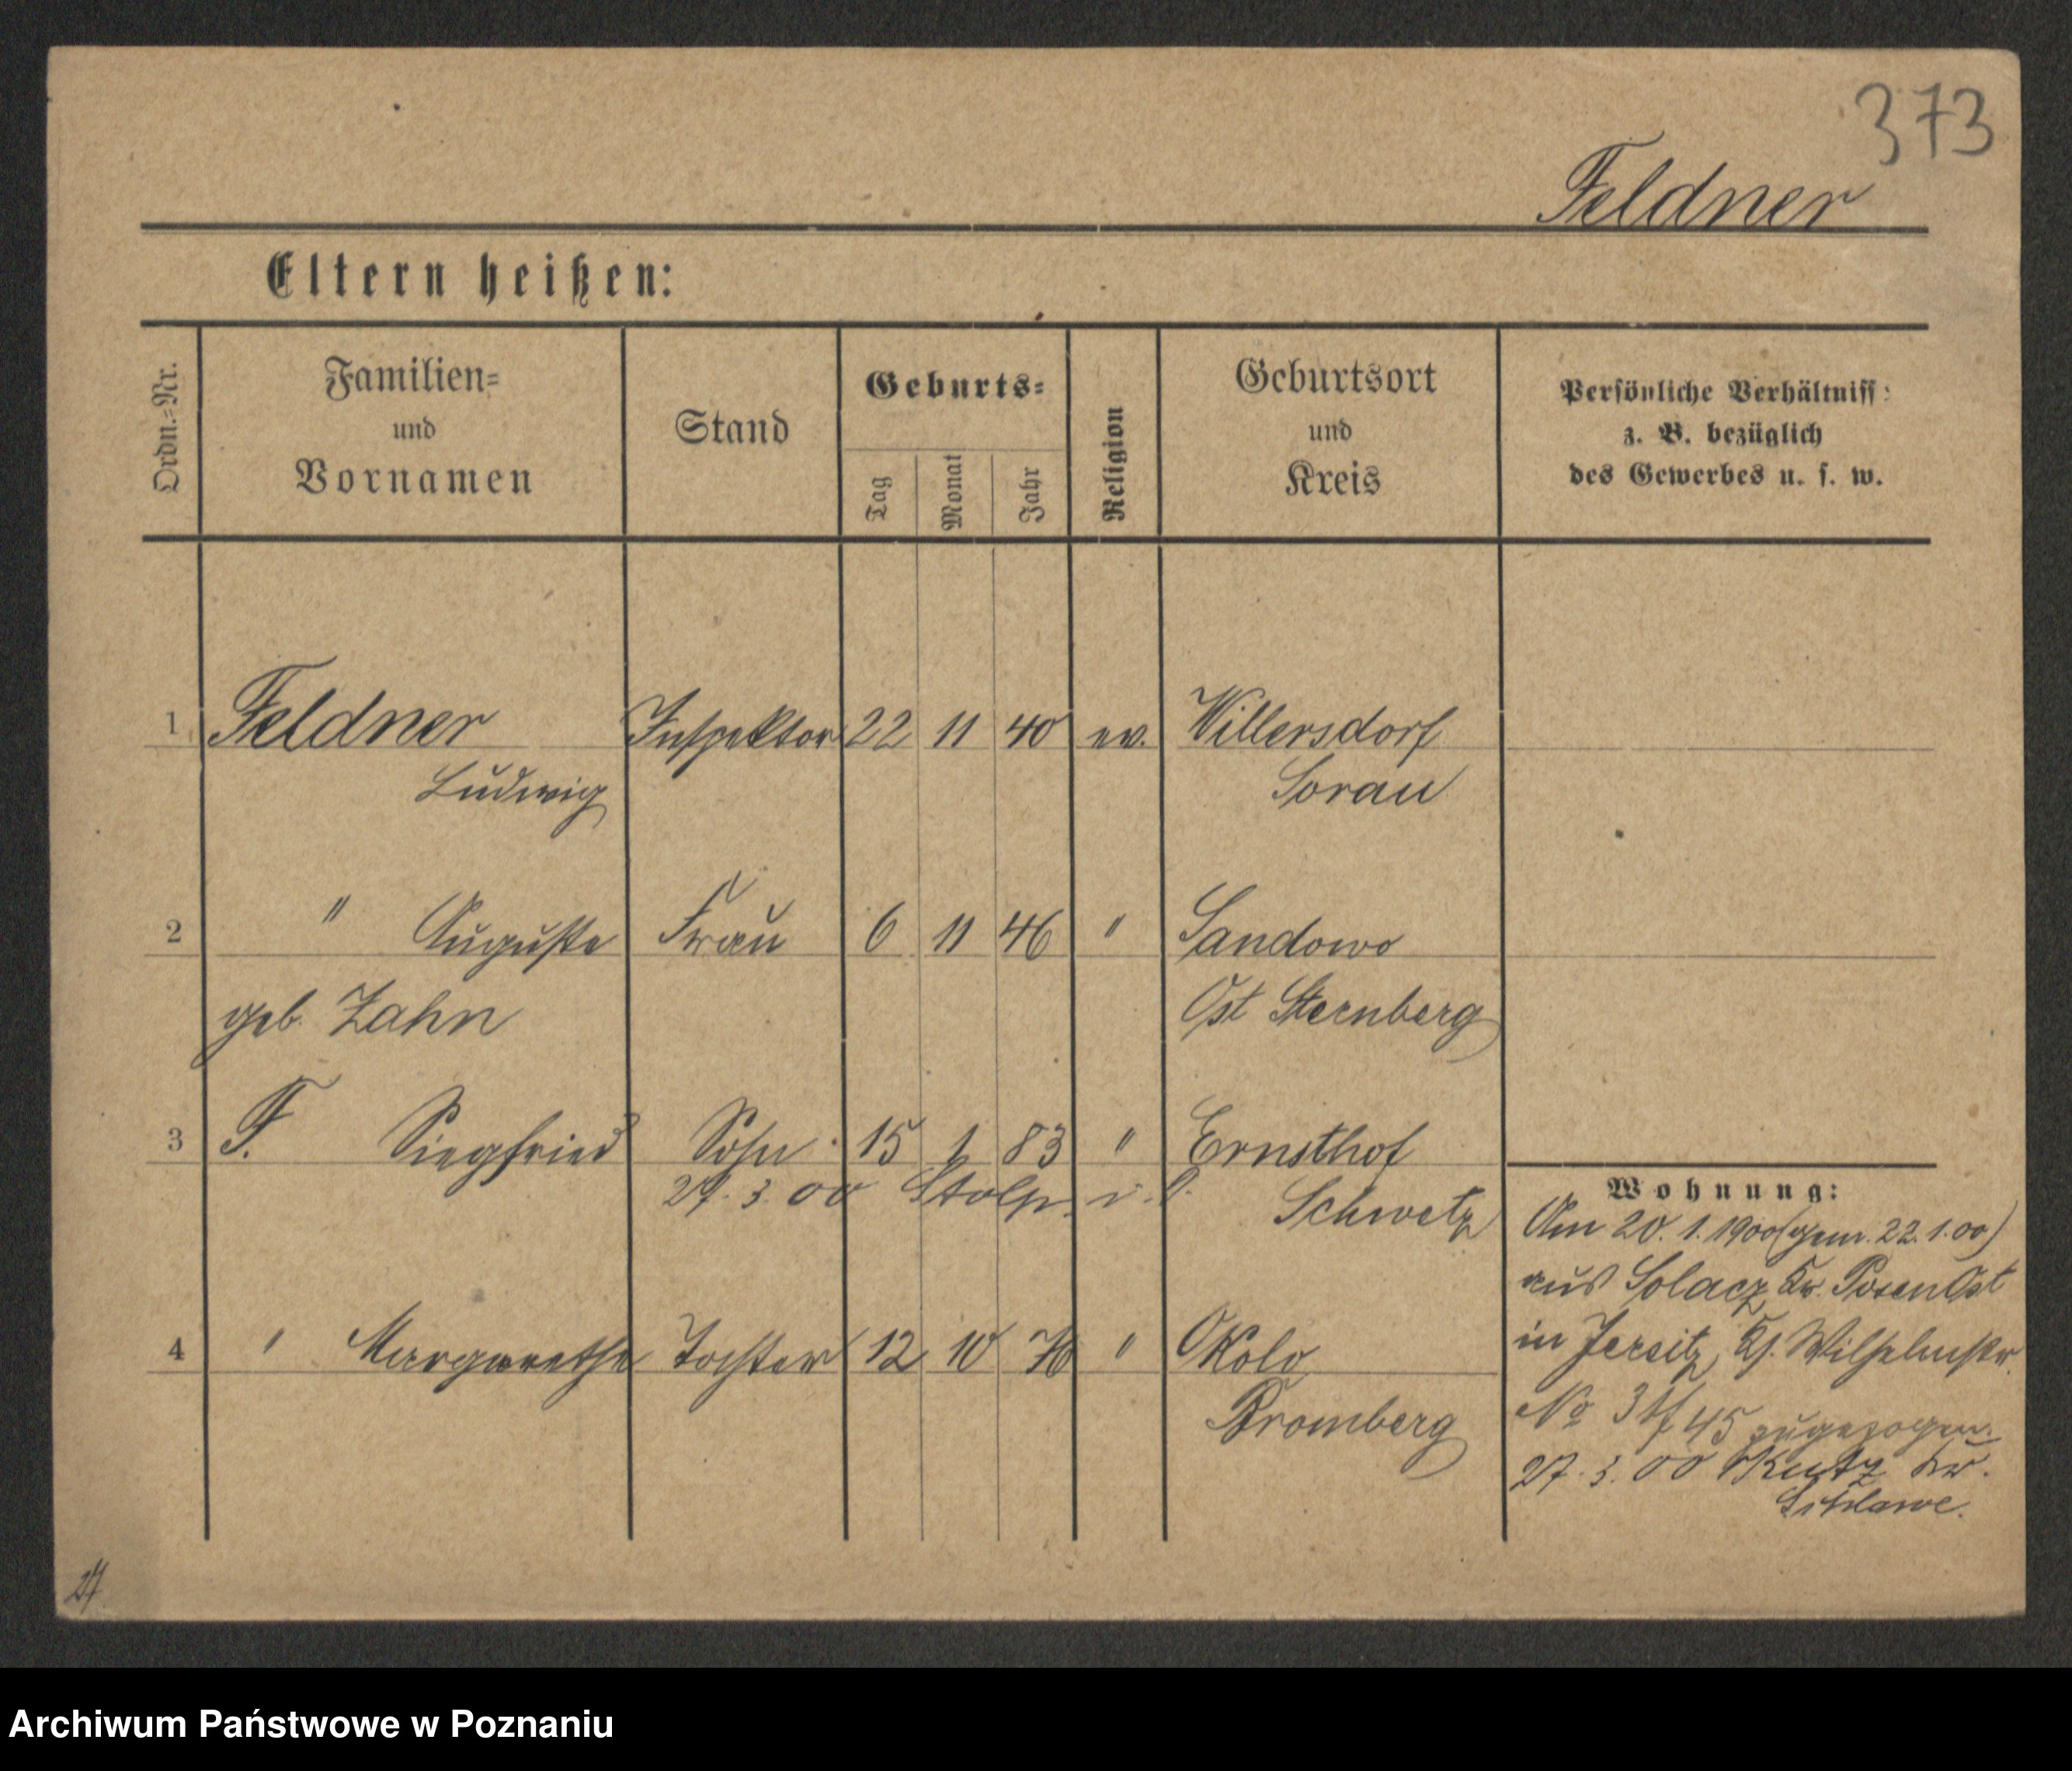 373
Feldner
Eltern heißen:
Ordn.=Nr.
Familien=
und
Vornamen
Stand
Geburts=
Tag
Monat
Jahr
Religion
Geburtsort
und
Kreis
Persönliche Verhältniss
z. B. bezüglich
des Gewerbes u. s. w.
1 Feldner Inspektor 22 11 40 ev. Willersdorf
Ludwig Sorau
2 " Auguste Frau 6 11 46 " Sandowo
geb. Zahn Ost Sternberg
3 F. Siegfried Sohn 15 1 83 " Ernsthof
27. 3. 00 Stolp i. P. Schwetz
4 " Margarethe Tochter 12 10 76 " Okolo
Bromberg
Wohnung:
Am 20. 1. 1900 (gem. 22. 1. 00)
aus Solacz, Kr. Posen Ost
in Jersitz, Wilhelmstr.
No 3 45 zugezogen.
27. 3. 00 Kr.
27
Archiwum Państwowe w Poznaniu